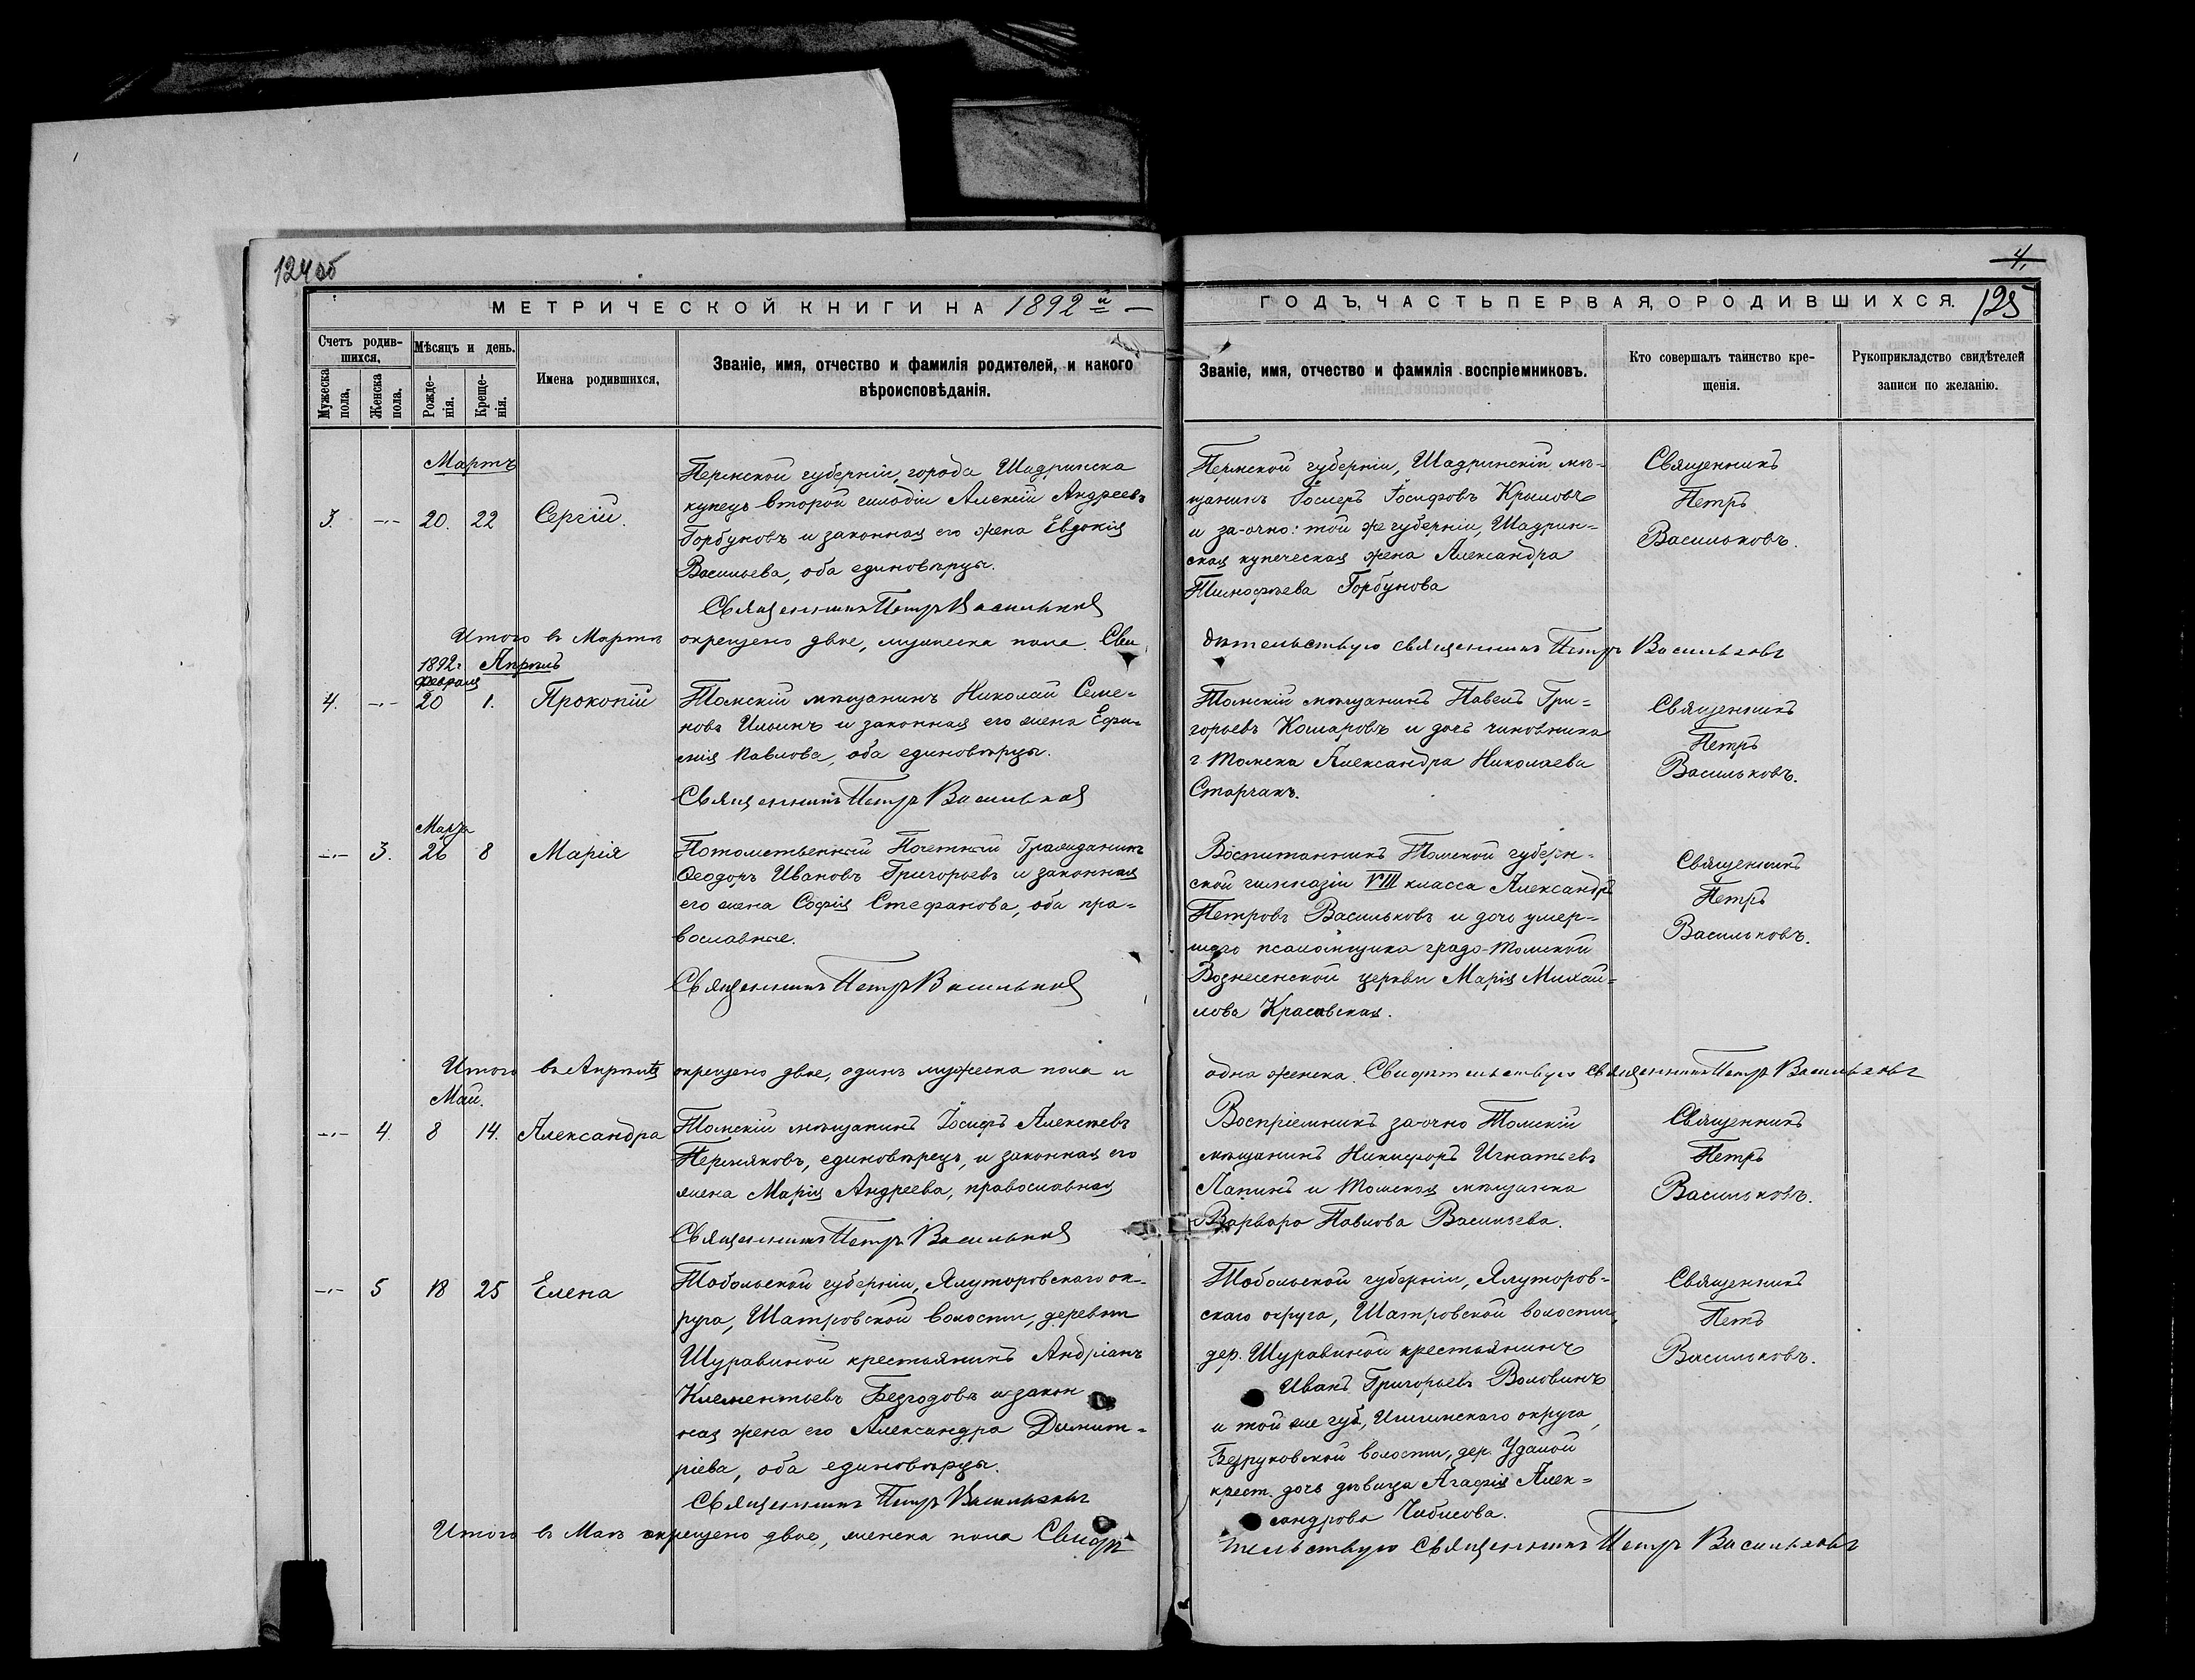 124 об
4.
МЕТРИЧЕСКОЙ КНИГИ НА 1892 й
ГОДЪ, ЧАСТЬ ПЕРВАЯ, О РОДИВШИХСЯ.
125
Счетъ родив-
шихся.
Мужеска
пола.
Женска
пола.
Мѣсяцъ и день.
Рожде-
нія.
Креще-
нія.
Имена родившихся.
Званіе, имя, отчество и фамилія родителей, и какого
вѣроисповѣданія.
Званіе, имя, отчество и фамилія воспріемниковъ.
Кто совершалъ таинство кре-
щенія.
Рукоприкладство свидѣтелей
записи по желанію.
Мартъ
3. -"- 20. 22 Сергій.
Пермской губерніи, города Шадринска
купецъ второй гильдіи Алексій Андреевъ
Горбуновъ и законная его жена Евдокія
Васильева, оба единовѣрцы.
Священникъ Петръ Васильковъ
Пермской губерніи, Шадринскій мѣ-
щанинъ Іосифъ Іосифовъ Крыловъ
и за-очно: той же губерніи, Шадрин-
ская купеческая жена Александра
Тимофѣева Горбунова
Священникъ
Петръ
Васильковъ.
Итого въ Мартѣ окрещено двое, мужеска пола. Сви
дѣтельствую священникъ Петръ Васильковъ
1892 г. Апрѣль
Февраля
4. -"- 20 1. Прокопій
Томскій мѣщанинъ Николай Семе-
новъ Ильинъ и законная его жена Ефи-
мія Павлова, оба единовѣрцы.
Священникъ Петръ Васильковъ
Томскій мѣщанинъ Павелъ Гри-
горьевъ Комаровъ и дочь чиновника
г. Томска Александра Николаева
Старчакъ.
Священникъ
Петръ
Васильковъ.
Марта
-"- 3. 26 8 Марія
Потомственный Почетный Гражданинъ
Ѳеодоръ Ивановъ Григорьевъ и законная
его жена Софія Стефанова, оба пра-
вославные.
Священникъ Петръ Васильковъ
Воспитанникъ Томской губерн-
ской гимназіи VIII класса Александръ
Петровъ Васильковъ и дочь умер-
шаго псаломщика градо-Томской
Вознесенской церкви Марія Михай-
лова Красавская.
Священникъ
Петръ
Васильковъ.
Итого въ Апрѣлѣ окрещено двое, одинъ мужеска пола и
одна женска. Свидѣтельствую священникъ Петръ Васильковъ
Май.
-"- 4. 8 14. Александра
Томскій мѣщанинъ Іосифъ Алексѣевъ
Пермяковъ, единовѣрецъ, и законная его
жена Марія Андреева, православная
Священникъ Петръ Васильковъ
Воспріемникъ за-очно Томскій
мѣщанинъ Никифоръ Игнатьевъ
Лапинъ и Томская мѣщанка
Варвара Павлова Васильева.
Священникъ
Петръ
Васильковъ.
-"- 5 18 25 Елена
Тобольской губерніи, Ялуторовскаго ок-
руга, Шатровской волости, деревни
Шуравиной крестьянинъ Андріанъ
Климентьевъ Безгодовъ и закон
ная жена его Александра Димит-
ріева, оба единовѣрцы.
Священникъ Петръ Васильковъ
Тобольской губерніи, Ялуторов-
скаго округа, Шатровской волости,
дер. Шуравиной крестьянинъ
Иванъ Григорьевъ Воловинъ
и той же губ, Ишимскаго округа,
Безруковской волости, дер. Удалой
крест. дочь дѣвица Агафія Алек-
сандрова Чибисова.
Священникъ
Петъ
Васильковъ.
Итого въ Маѣ окрещено двое, женска пола Свидѣ
тельствую священникъ Петръ Васильковъ